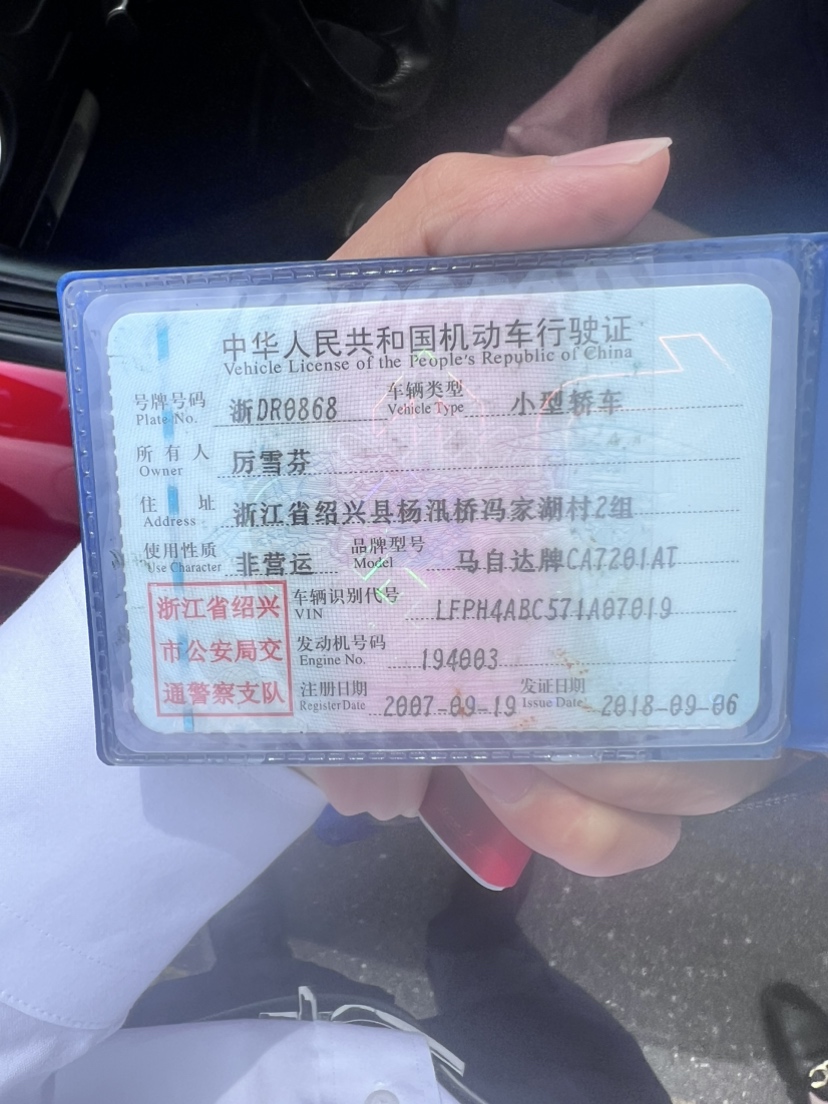 中华人民共和国机动车行驶证
Vehicle License of the People's Republic of China
号牌号码 浙DR0868 车辆类型 小型轿车
Plate No. Vehicle Type
所有人 厉雪芬
Owner
住址 浙江省绍兴县杨汛桥冯家湖村2组
Address
使用性质 非营运 品牌型号 马自达牌CA7201AT
Use Character Model
浙江省绍兴
市公安局交
通警察支队
车辆识别代号 LFPH4ABC571A07019
VIN
发动机号码 194003
Engine No.
注册日期 2007-09-19 发证日期 2018-09-06
Register Date Issue Date